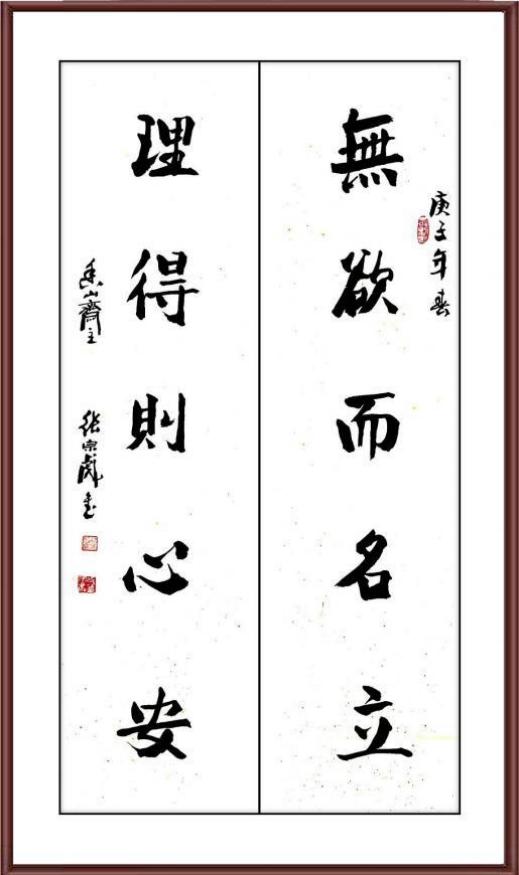 庚子年春
無欲而名立
理得則心安
香山齋主 張宗彪書